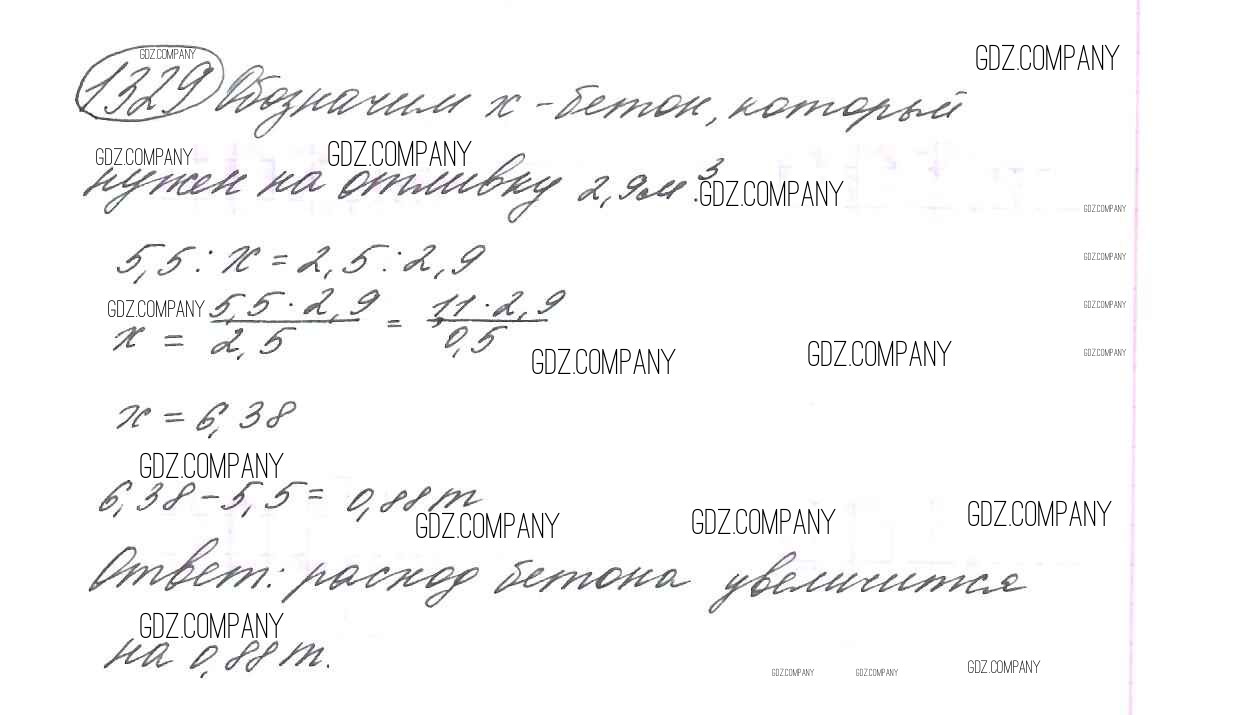 GDZ.COMPANY
GDZ.COMPANY
1329 Обозначим x - бетон, который
GDZ.COMPANY
GDZ.COMPANY
нужен на отливку 2,9м³.
GDZ.COMPANY
GDZ.COMPANY
5,5 : x = 2,5 : 2,9
GDZ.COMPANY
GDZ.COMPANY
GDZ.COMPANY
x = 5,5 · 2,9 / 2,5 = 11 · 2,9 / 0,5
GDZ.COMPANY
GDZ.COMPANY
GDZ.COMPANY
x = 6,38
GDZ.COMPANY
6,38 - 5,5 = 0,88т
GDZ.COMPANY
GDZ.COMPANY
GDZ.COMPANY
Ответ: расход бетона увеличится
GDZ.COMPANY
на 0,88т.
GDZ.COMPANY
GDZ.COMPANY
GDZ.COMPANY